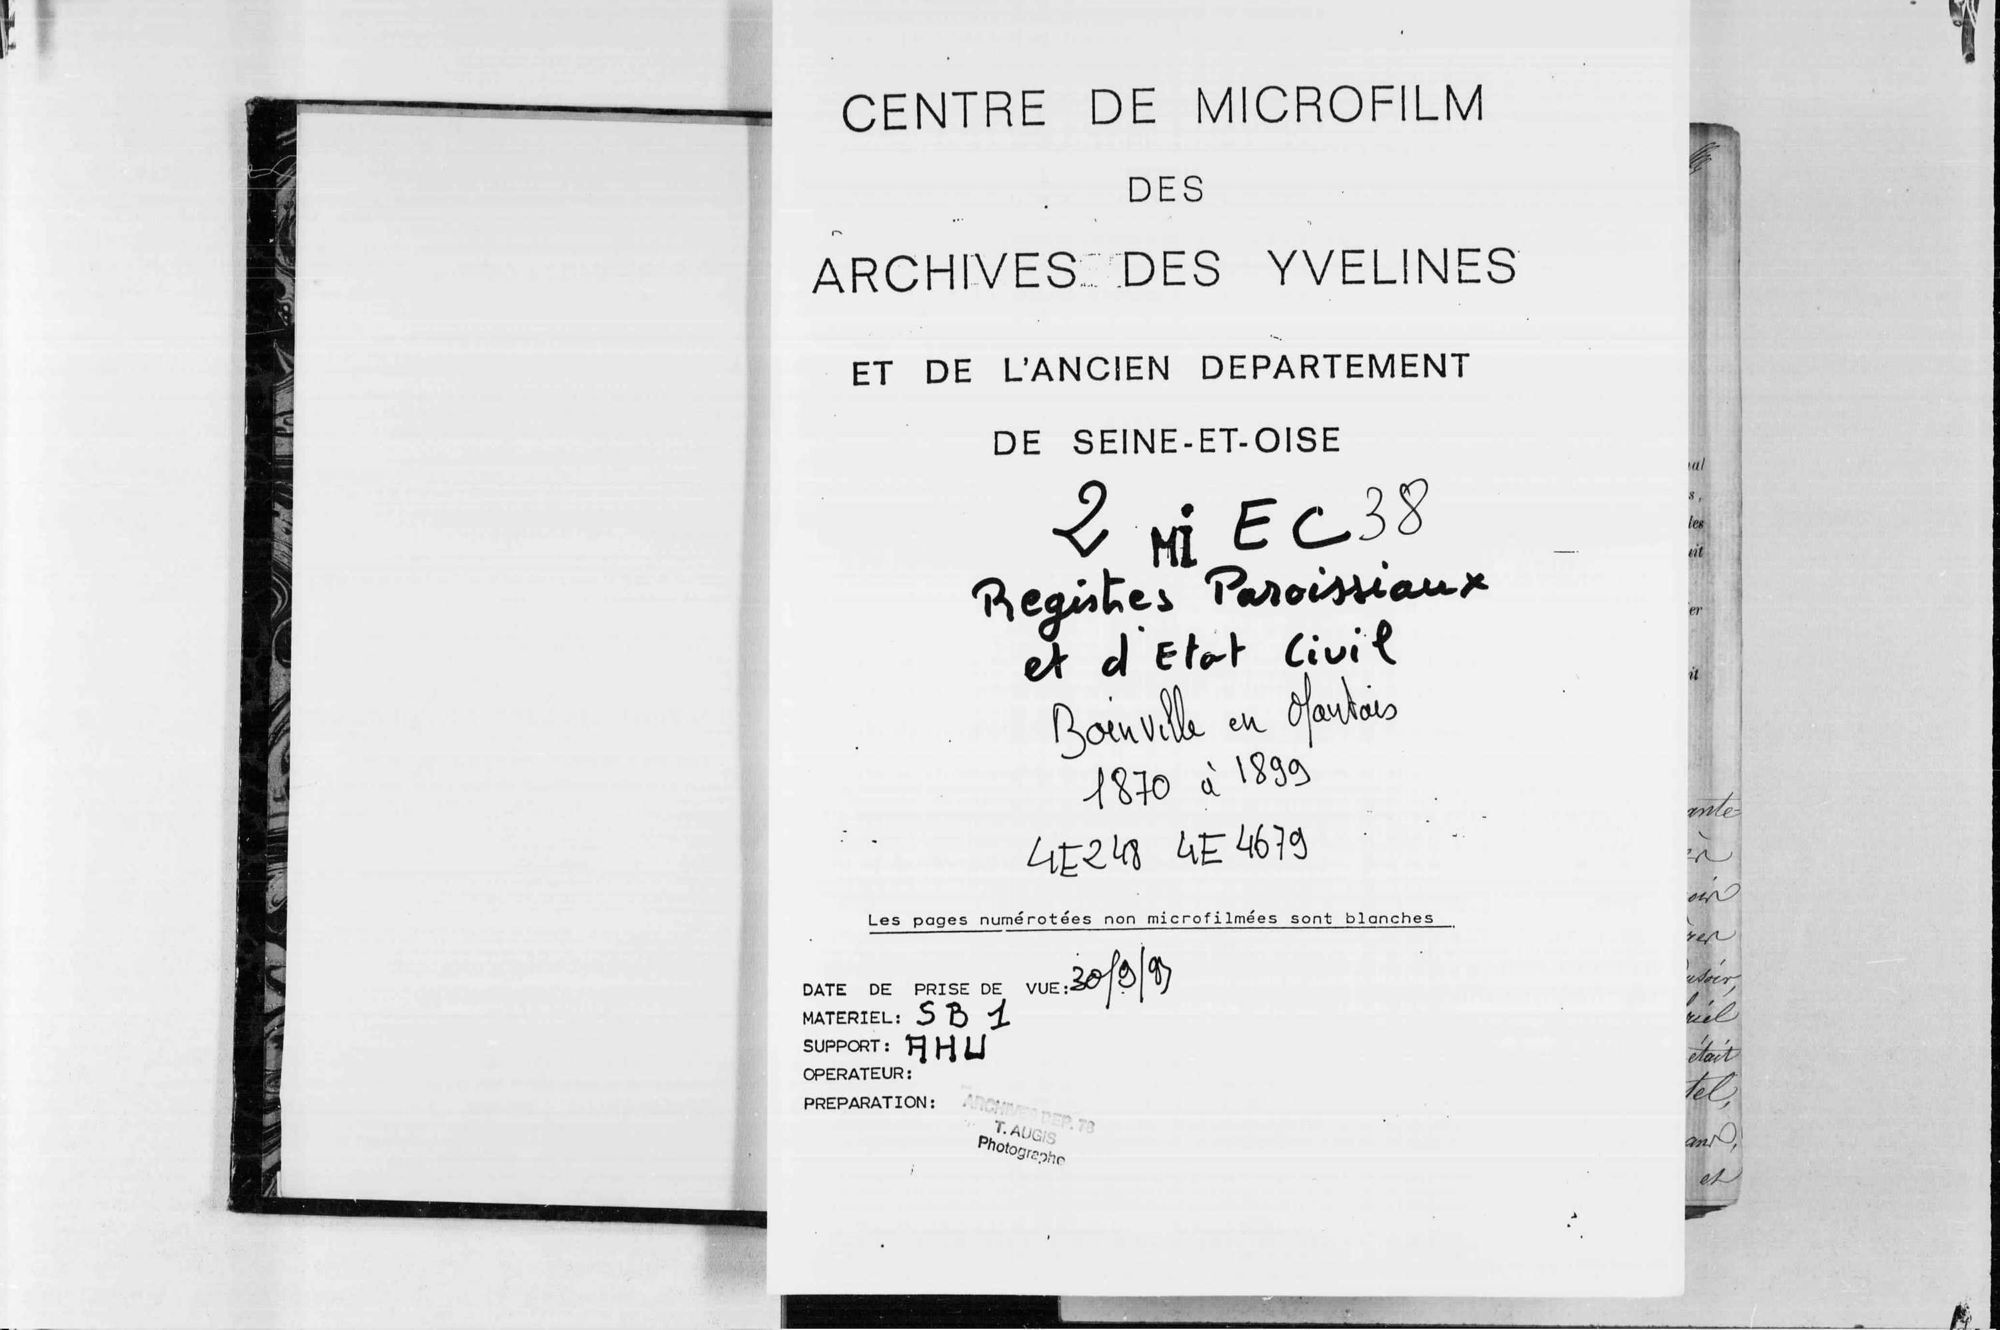 CENTRE DE MICROFILM
DES
ARCHIVES DES YVELINES
ET DE L'ANCIEN DEPARTEMENT
DE SEINE-ET-OISE
2 MI EC 38
Registres Paroissiaux
et d'Etat Civil
Boinville en Mantois
1870 à 1899
4E248 4E4679
Les pages numérotées non microfilmées sont blanches
DATE DE PRISE DE VUE: 30/9/
MATERIEL: SB 1
SUPPORT: AHU
OPERATEUR:
PREPARATION:
ARCHIVES DEP. 78
T. AUGIS
Photographe
er
ante-
était
tel,
et